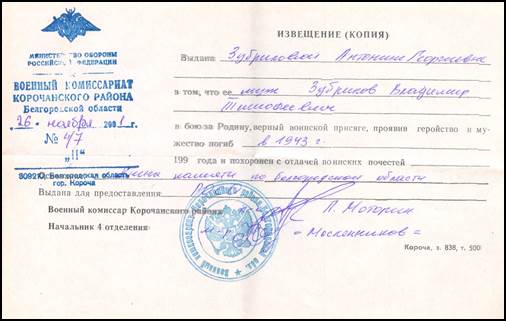 МИНИСТЕРСТВО ОБОРОНЫ
РОССИЙСКОЙ ФЕДЕРАЦИИ
ВОЕННЫЙ КОМИССАРИАТ
КОРОЧАНСКОГО РАЙОНА
Белгородской области
26 ноября 2001 г.
№ 47
"II"
309210, Белгородская область
гор. Короча
ИЗВЕЩЕНИЕ (КОПИЯ)
Выдана Зубриковой Антонине Георгиевне
в том, что ее муж Зубриков Владимир
Тимофеевич
в бою за Родину, верный воинской присяге, проявив геройство и му-
жество погиб в 1943 г.
199 года и похоронен с отдачей воинских почестей
книги памяти по Белгородской области
Выдана для предоставления
Военный комиссар Корочанского района П. Моторин
Начальник 4 отделения Масленников
Короча, з. 838, т. 500